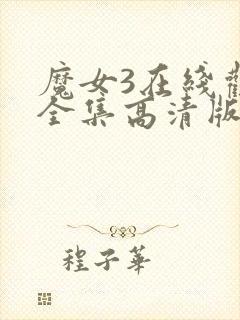 魔女3在线
全集高清版
程子華